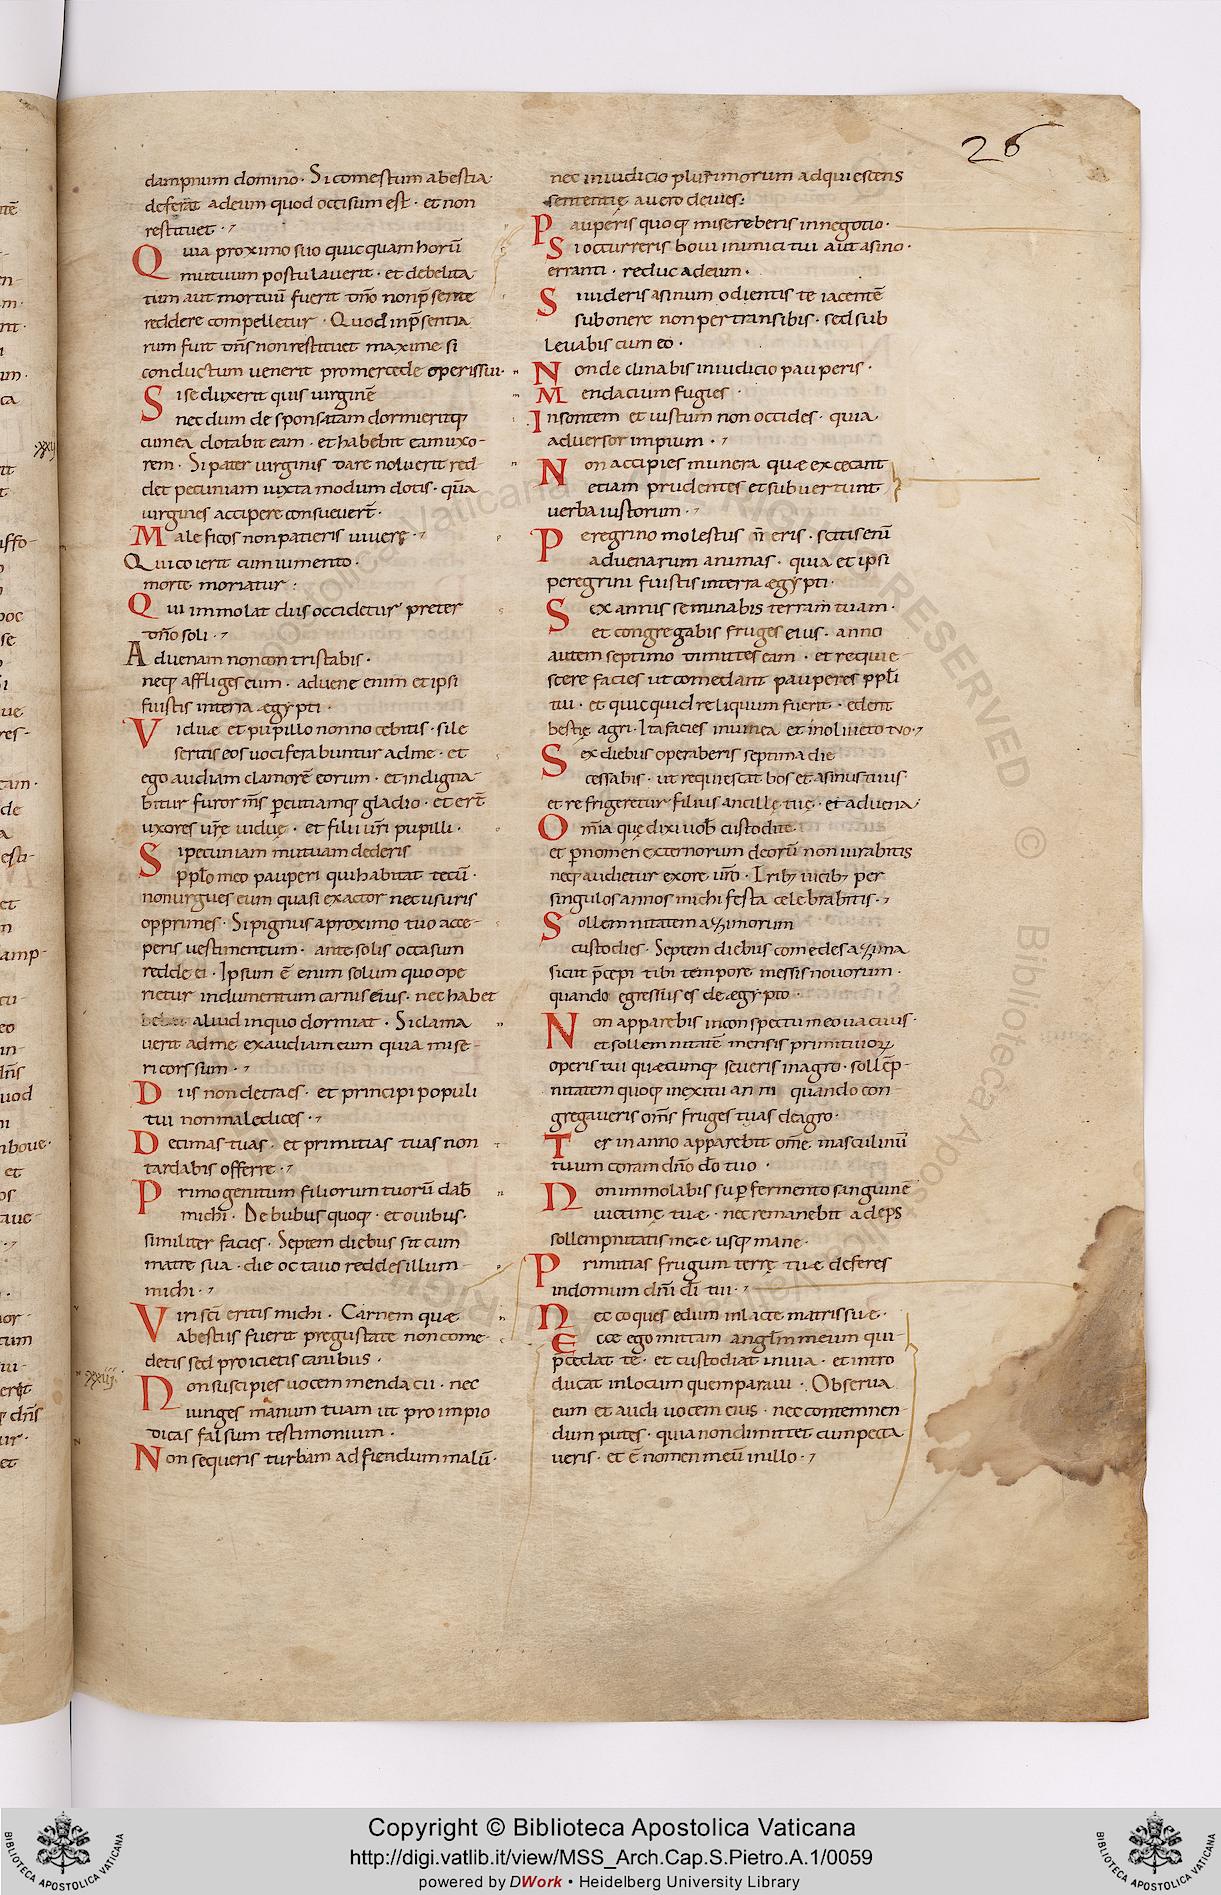 26
dampnum domino. Si comestum a bestia
deferat ad eum quod occisum est. et non
restituet.
Qui a proximo suo quicquam horū
mutuum postulaverit. et debelita
tum aut mortuū fuerit dn̄o non p̄sente
reddere compelletur. Quod in p̄sentia
rum fuit dn̄s non restituet maxime si
conductum venerit pro mercede operis sui.
Si seduxerit quis virginē
necdum desponsatam dormieritq;
cum ea dotabit eam. et habebit eam uxo-
rem. Si pater virginis dare noluerit red-
det pecuniam iuxta modum dotis. quā
virgines accipere consueverт̄.
Maleficos non patieris vivere.
Qui coierit cum iumento.
morte moriatur.
Qui immolat diis occidetur preter
dn̄o soli.
Advenam non contristabis.
neq; affliges eum. advene enim et ipsi
fuistis in terra ęgypti.
Viduæ et pupillo non nocebitis. si le
seritis eos vociferabuntur ad me. et
ego audiam clamorē eorum. et indigna
bitur furor m̄s p̄cutiamq; gladio. et erт̄
uxores vr̄ę viduę. et filii vr̄i pupilli.
Si pecuniam mutuam dederis
pplo meo pauperi qui habitat tecū.
non urgues eum quasi exactor nec usuris
opprimes. Si pignus a proximo tuo acce-
peris vestimentum. ante solis occasum
redde ei. Ipsum ē enim solum quo ope
rietur indumentum carnis eius. nec habet
aliud in quo dormiat. Si clama
verit ad me exaudiam eum quia mise-
ricors sum.
Diis non detraes. et principi populi
tui non maledices.
Decimas tuas. et primitias tuas non
tardabis offerre.
Primogenitum filiorum tuorū dab̄
michi. De bubus quoq; et ovibus.
similiter facies. Septem diebus sit cum
matre sua. die octavo reddes illum
michi.
Viri sc̄i eritis michi. Carnem quæ
a bestiis fuerit pregustate non come-
detis sed proicietis canibus.
xxiij.
Non suscipies vocem mendacii. nec
iunges manum tuam ut pro impio
dicas falsum testimonium.
Non sequeris turbam ad fiendum malū.
nec in iudicio plurimorum adquiescens
sententię a vero devies.
Pauperis quoq; misereberis in negotio.
Si occurreris bovi inimici tui aut asino.
erranti. reduc ad eum.
Si videris asinum odientis te iacentē
sub onere non pertransibis. sed sub
levabis cum eo.
Non declinabis in iudicio pauperis.
Mendacium fugies.
Insontem et iustum non occides. quia
adversor impium.
Non accipies munera quæ excecant
etiam prudentes et subvertunt
verba iustorum.
Peregrino molestus n̄ eris. scitis enī
advenarum animas. quia et ipsi
peregrini fuistis in terra ægypti.
Sex annis seminabis terram tuam.
et congregabis fruges eius. anno
autem septimo dimittes eam. et requie-
scere facies ut comedant pauperes ppli
tui. et quicquid reliquum fuerit. edent
bestię agri. Ita facies in vinea et in oliveto tuo.
Sex diebus operaberis septima die
cessabis. ut requiescat bos et asinus tuus.
et refrigeretur filius ancillę tuę. et advena.
Om̄ia quę dixi vob̄ custodite.
et p̄ nomen externorum deorū non iurabitis
neq; audietur ex ore vr̄o. Trib; vicib; per
singulos annos michi festa celebrabitis.
Sollemnitatem azimorum
custodies. Septem diebus comedes azima
sicut p̄cepi tibi tempore messis novorum.
quando egressus es de ęgypto.
Non apparebis in conspectu meo vacuus.
et sollemnitatē mensis primitivorꝝ
operis tui quæcumq; severis in agro. sollēp-
nitatem quoq; in exitu anni quando con-
gregaveris om̄s fruges tuas de agro.
Ter in anno apparebit om̄e masculinū
tuum coram dn̄o d̄o tuo.
Non immolabis sup̄ fermento sanguinē
victimę tuæ. nec remanebit adeps
sollempnitatis meæ usq; mane.
Primitias frugum terrę tuæ deferes
in domum dn̄i d̄i tui.
Nec coques edum in lacte matris suæ.
Ecce ego mittam angl̄m meum qui
p̄cedat te. et custodiat in via. et intro
ducat in locum quem paravi. Observa
eum et audi vocem eius. nec contemnen-
dum putes. quia non dimittet cum pecca
veris. et ē nomen meū in illo.
Copyright © Biblioteca Apostolica Vaticana
http://digi.vatlib.it/view/MSS_Arch.Cap.S.Pietro.A.1/0059
powered by DWork • Heidelberg University Library
BIBLIOTECA APOSTOLICA VATICANA
BIBLIOTECA APOSTOLICA VATICANA